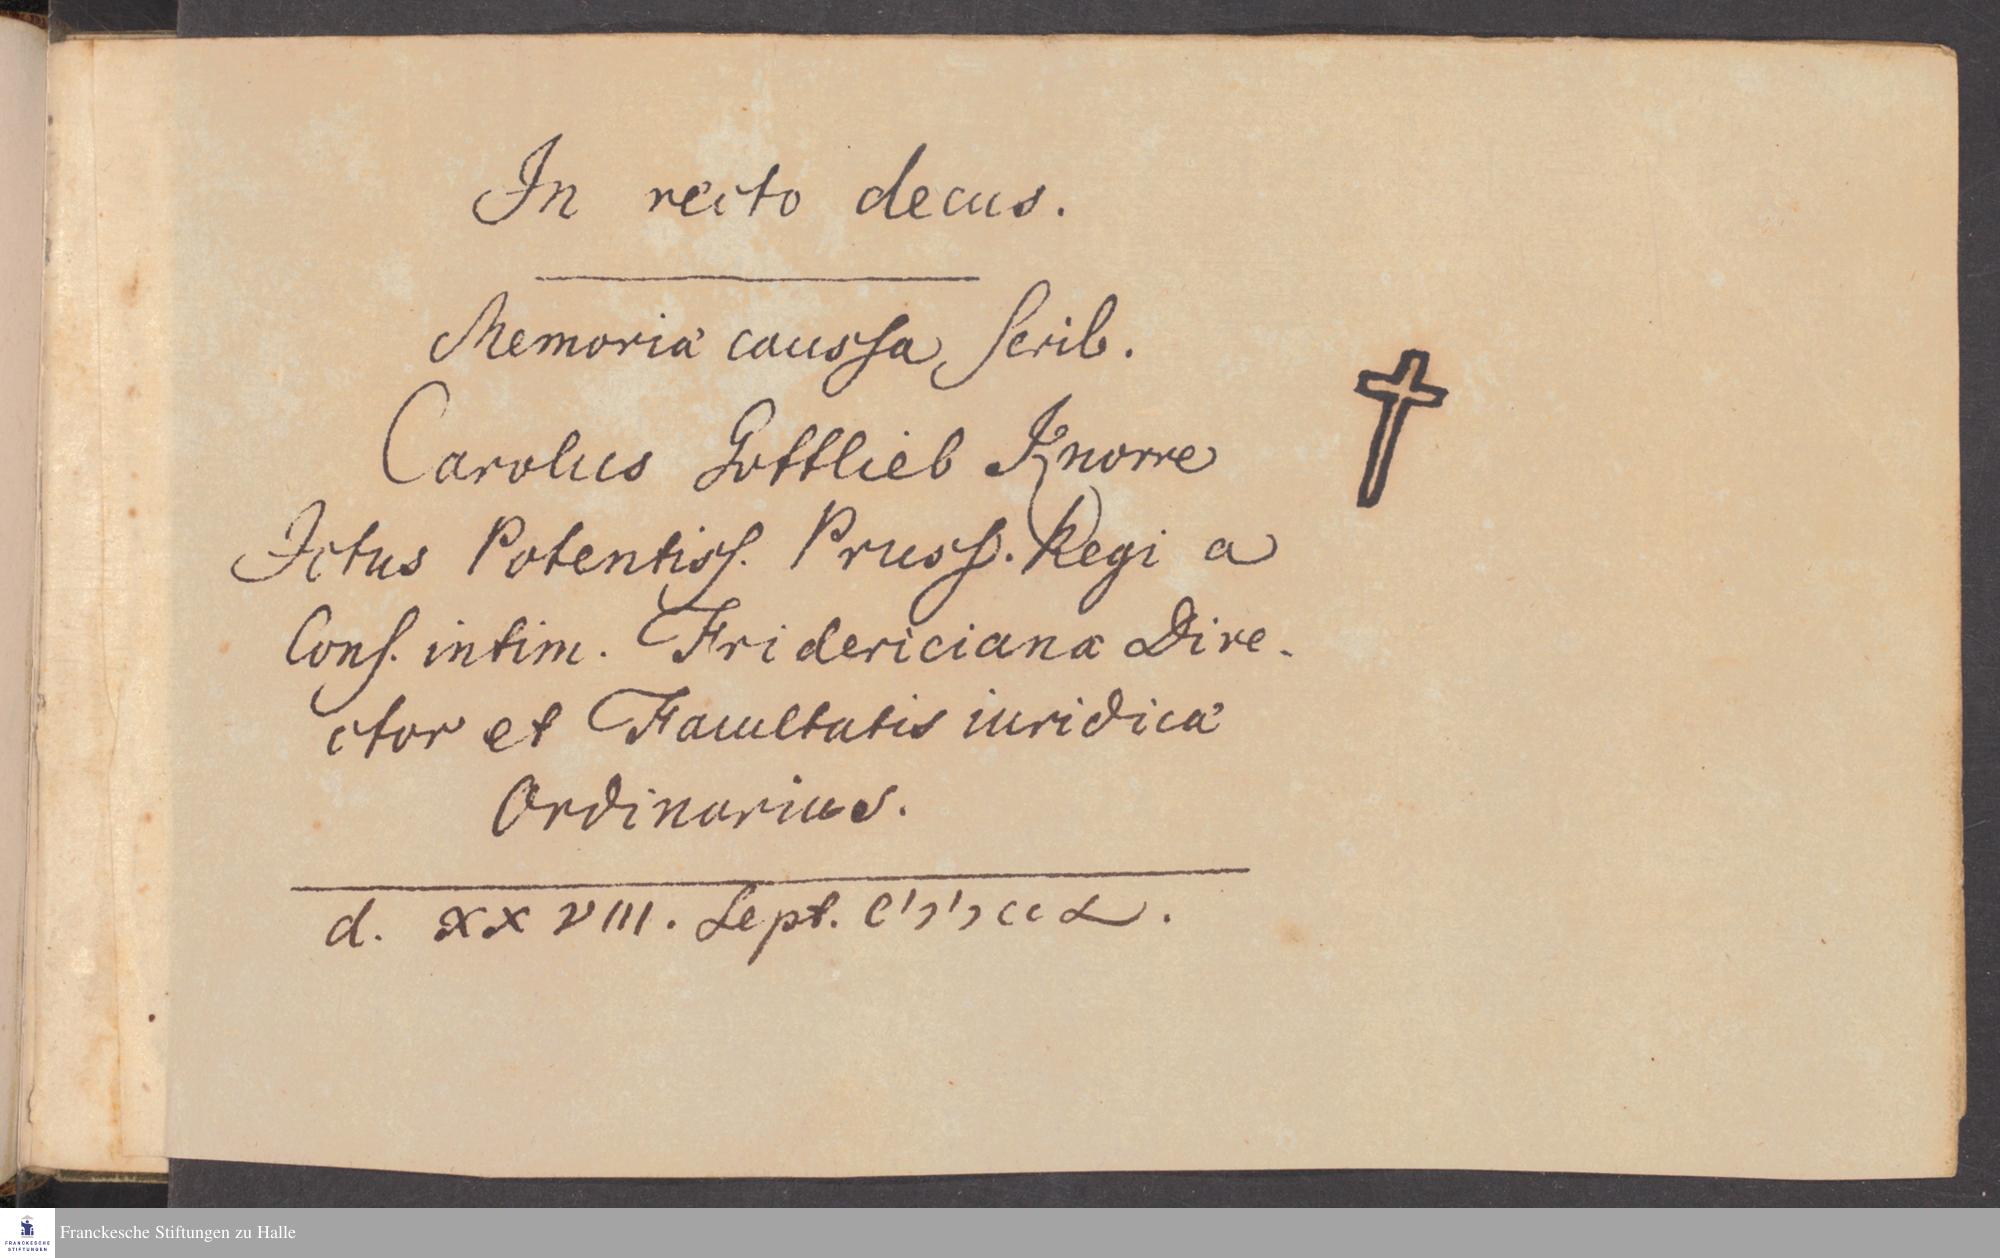 In recto decus.
Memoriæ caussa scrib.
Carolus Gottlieb Knorre
Ictus Potentiss. Pruss. Regi a
Cons. intim. Fridericianæ Dire-
ctor et Facultatis iuridicæ
Ordinarius.
d. XXVIII. Sept. CIƆIƆCCL.
FRANCKESCHE
STIFTUNGEN
Franckesche Stiftungen zu Halle